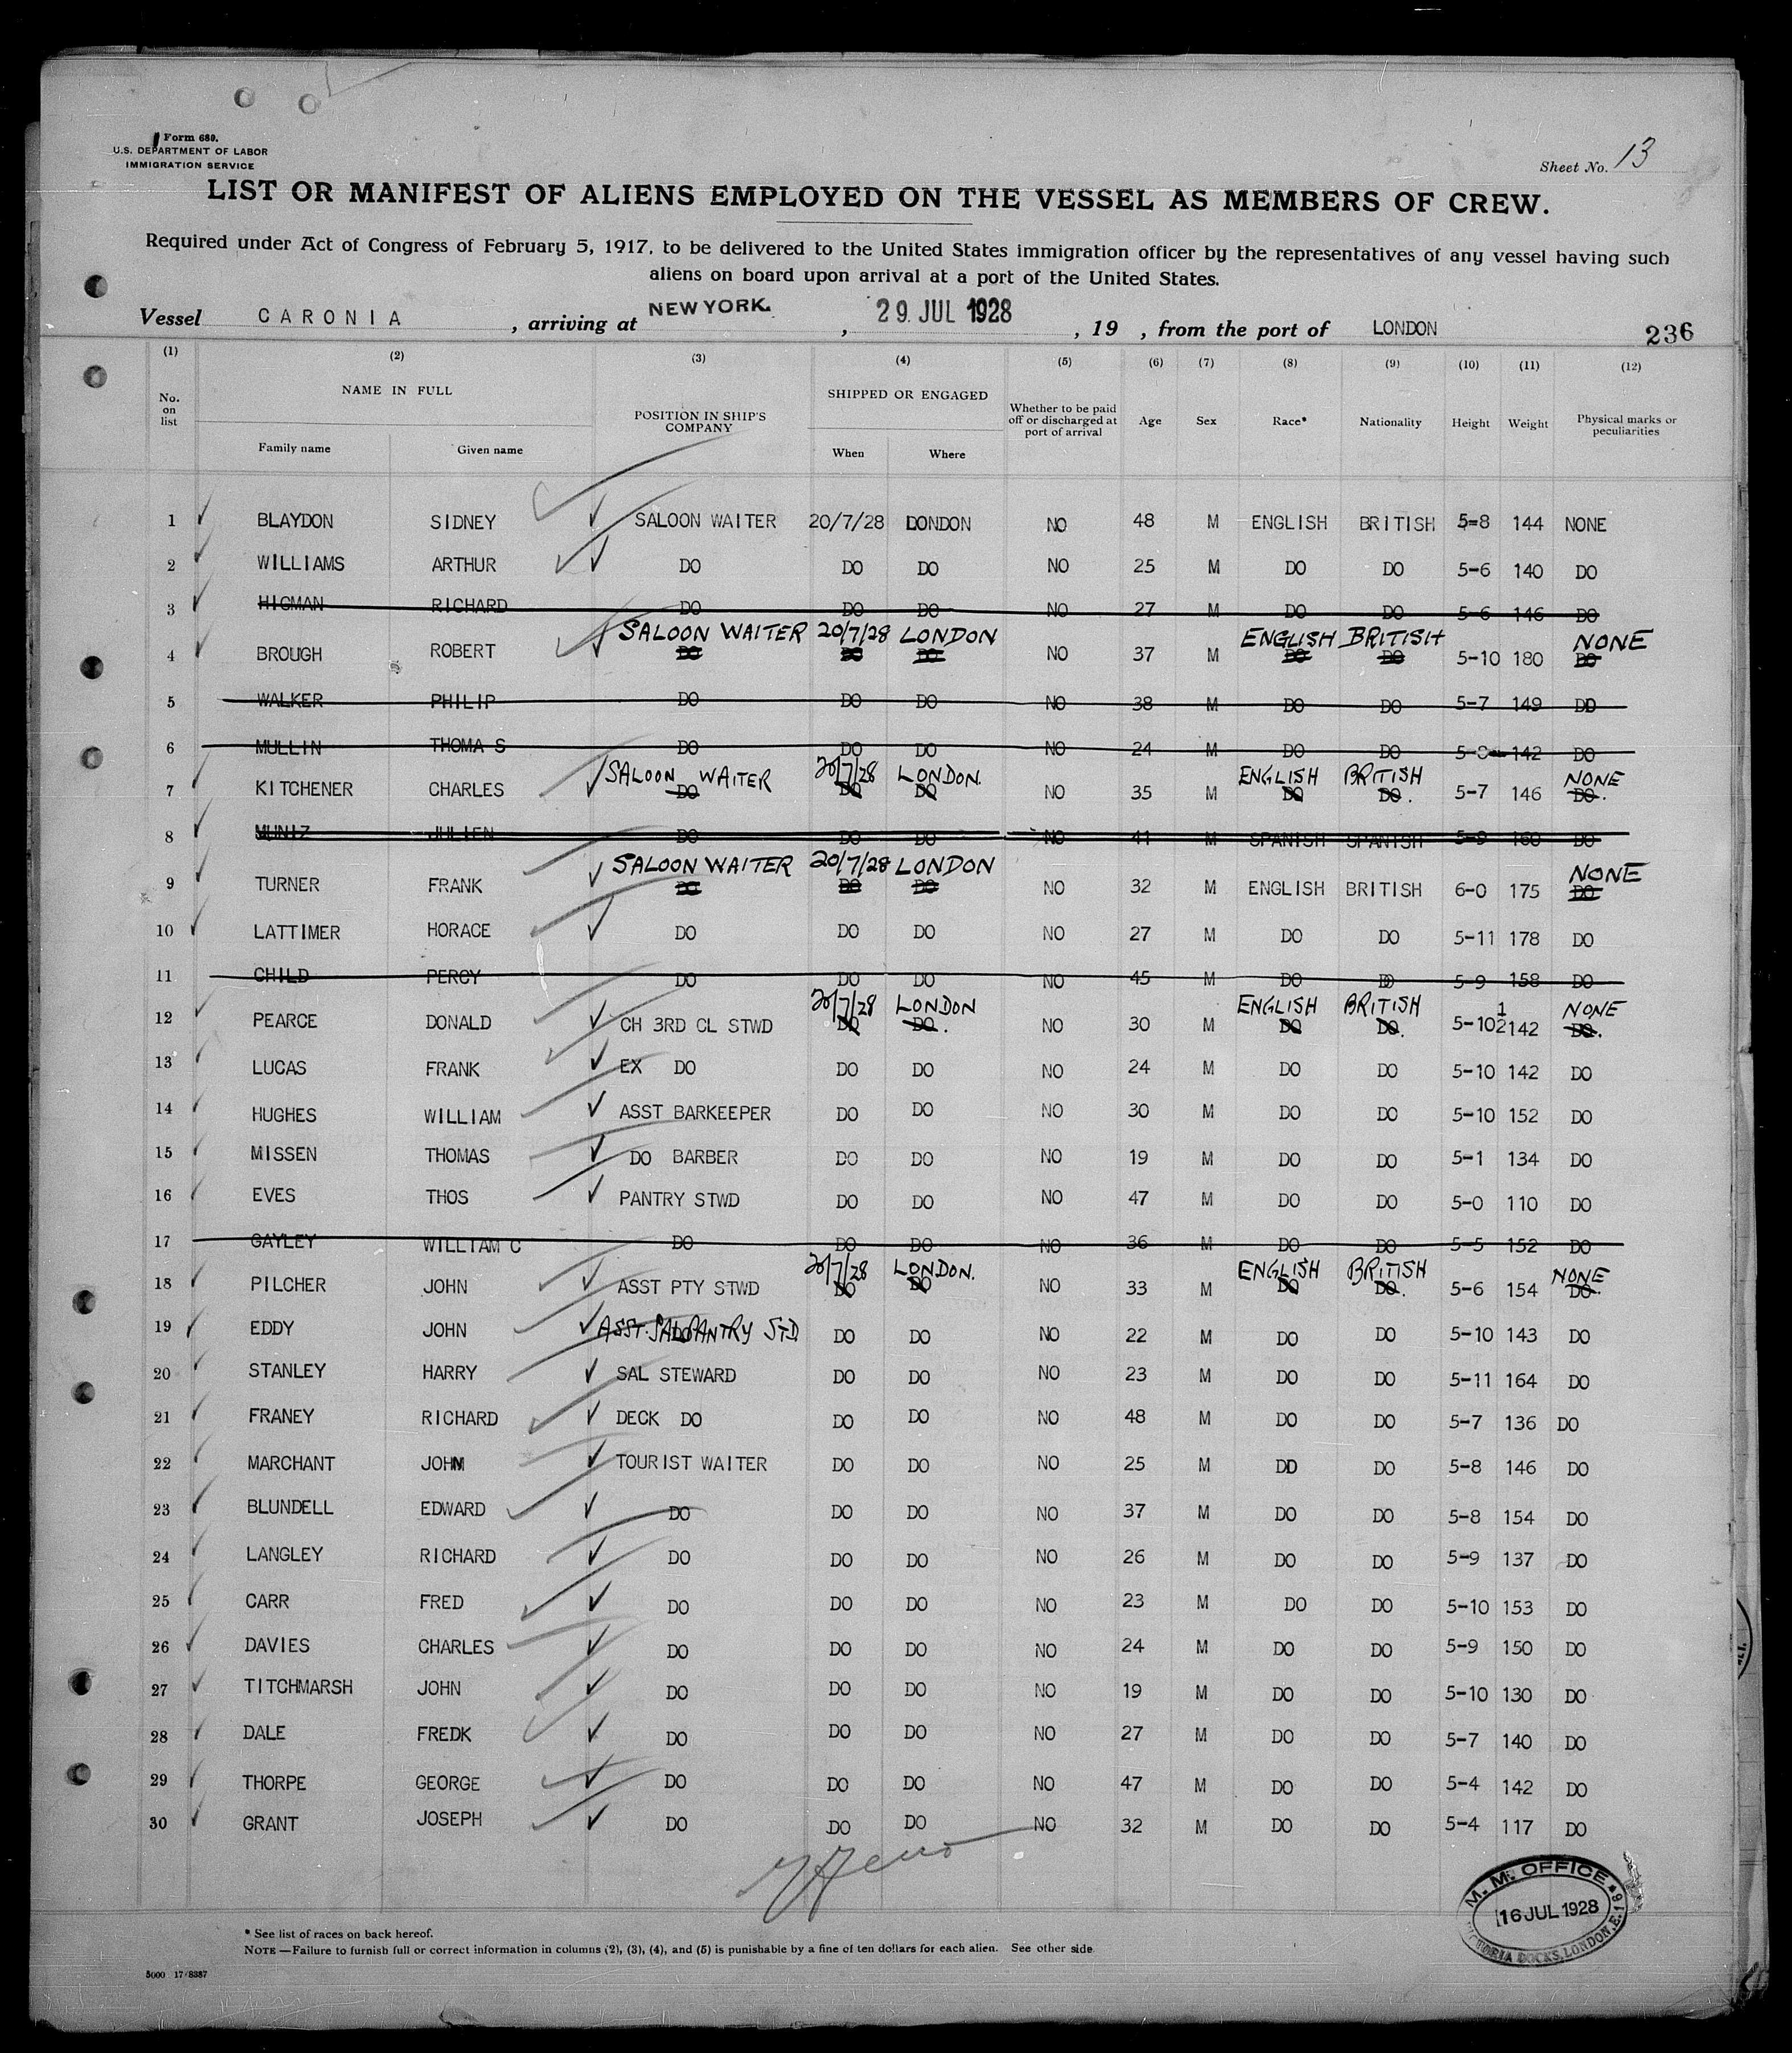 Form 689.
U.S. DEPARTMENT OF LABOR
IMMIGRATION SERVICE
Sheet No. 13
LIST OR MANIFEST OF ALIENS EMPLOYED ON THE VESSEL AS MEMBERS OF CREW.
Required under Act of Congress of February 5, 1917, to be delivered to the United States immigration officer by the representatives of any vessel having such
aliens on board upon arrival at a port of the United States.
Vessel CARONIA , arriving at NEW YORK. , 29 JUL 1928 , 19 , from the port of LONDON 236
(1) (2) (3) (4) (5) (6) (7) (8) (9) (10) (11) (12)
No. on list NAME IN FULL POSITION IN SHIP'S COMPANY SHIPPED OR ENGAGED Whether to be paid off or discharged at port of arrival Age Sex Race* Nationality Height Weight Physical marks or peculiarities
Family name Given name When Where
1 BLAYDON SIDNEY SALOON WAITER 20/7/28 LONDON NO 48 M ENGLISH BRITISH 5-8 144 NONE
2 WILLIAMS ARTHUR DO DO DO NO 25 M DO DO 5-6 140 DO
3 HIGMAN RICHARD DO DO DO NO 27 M DO DO 5-6 146 DO
SALOON WAITER 20/7/28 LONDON ENGLISH BRITISH NONE
4 BROUGH ROBERT DO DO DO NO 37 M DO DO 5-10 180 DO
5 WALKER PHILIP DO DO DO NO 38 M DO DO 5-7 149 DD
6 MULLIN THOMA S DO DO DO NO 24 M DO DO 142 DO
SALOON WAITER 20/7/28 LONDON. ENGLISH BRITISH NONE
7 KITCHENER CHARLES DO DO DO NO 35 M DO DO. 5-7 146 DO.
8 MUNIZ JULIEN DO DO DO NO 41 M SPANISH SPANISH 5-9 160 DO
SALOON WAITER 20/7/28 LONDON NONE
9 TURNER FRANK DO DO DO NO 32 M ENGLISH BRITISH 6-0 175 DO
10 LATTIMER HORACE DO DO DO NO 27 M DO DO 5-11 178 DO
11 CHILD PERCY DO DO DO NO 45 M DO DO 5-9 158 DO
20/7/28 LONDON ENGLISH BRITISH NONE
12 PEARCE DONALD CH 3RD CL STWD DO DO. NO 30 M DO DO. 5-10½ 142 DO.
13 LUCAS FRANK EX DO DO DO NO 24 M DO DO 5-10 142 DO
14 HUGHES WILLIAM ASST BARKEEPER DO DO NO 30 M DO DO 5-10 152 DO
15 MISSEN THOMAS DO BARBER DO DO NO 19 M DO DO 5-1 134 DO
16 EVES THOS PANTRY STWD DO DO NO 47 M DO DO 5-0 110 DO
17 GAYLEY WILLIAM C DO DO DO NO 36 M DO DO 5-5 152 DO
20/7/28 LONDON. ENGLISH BRITISH NONE
18 PILCHER JOHN ASST PTY STWD DO DO NO 33 M DO DO. 5-6 154 DO.
19 EDDY JOHN ASST. SAL PANTRY STD DO DO NO 22 M DO DO 5-10 143 DO
20 STANLEY HARRY SAL STEWARD DO DO NO 23 M DO DO 5-11 164 DO
21 FRANEY RICHARD DECK DO DO DO NO 48 M DO DO 5-7 136 DO
22 MARCHANT JOHN TOURIST WAITER DO DO NO 25 M DD DO 5-8 146 DO
23 BLUNDELL EDWARD DO DO DO NO 37 M DO DO 5-8 154 DO
24 LANGLEY RICHARD DO DO DO NO 26 M DO DO 5-9 137 DO
25 CARR FRED DO DO DO NO 23 M DO DO 5-10 153 DO
26 DAVIES CHARLES DO DO DO NO 24 M DO DO 5-9 150 DO
27 TITCHMARSH JOHN DO DO DO NO 19 M DO DO 5-10 130 DO
28 DALE FREDK DO DO DO NO 27 M DO DO 5-7 140 DO
29 THORPE GEORGE DO DO DO NO 47 M DO DO 5-4 142 DO
30 GRANT JOSEPH DO DO DO NO 32 M DO DO 5-4 117 DO
M. M. OFFICE
16 JUL 1928
DOCKS, LONDON, E.16
* See list of races on back hereof.
NOTE—Failure to furnish full or correct information in columns (2), (3), (4), and (5) is punishable by a fine of ten dollars for each alien. See other side
5000 17/8387